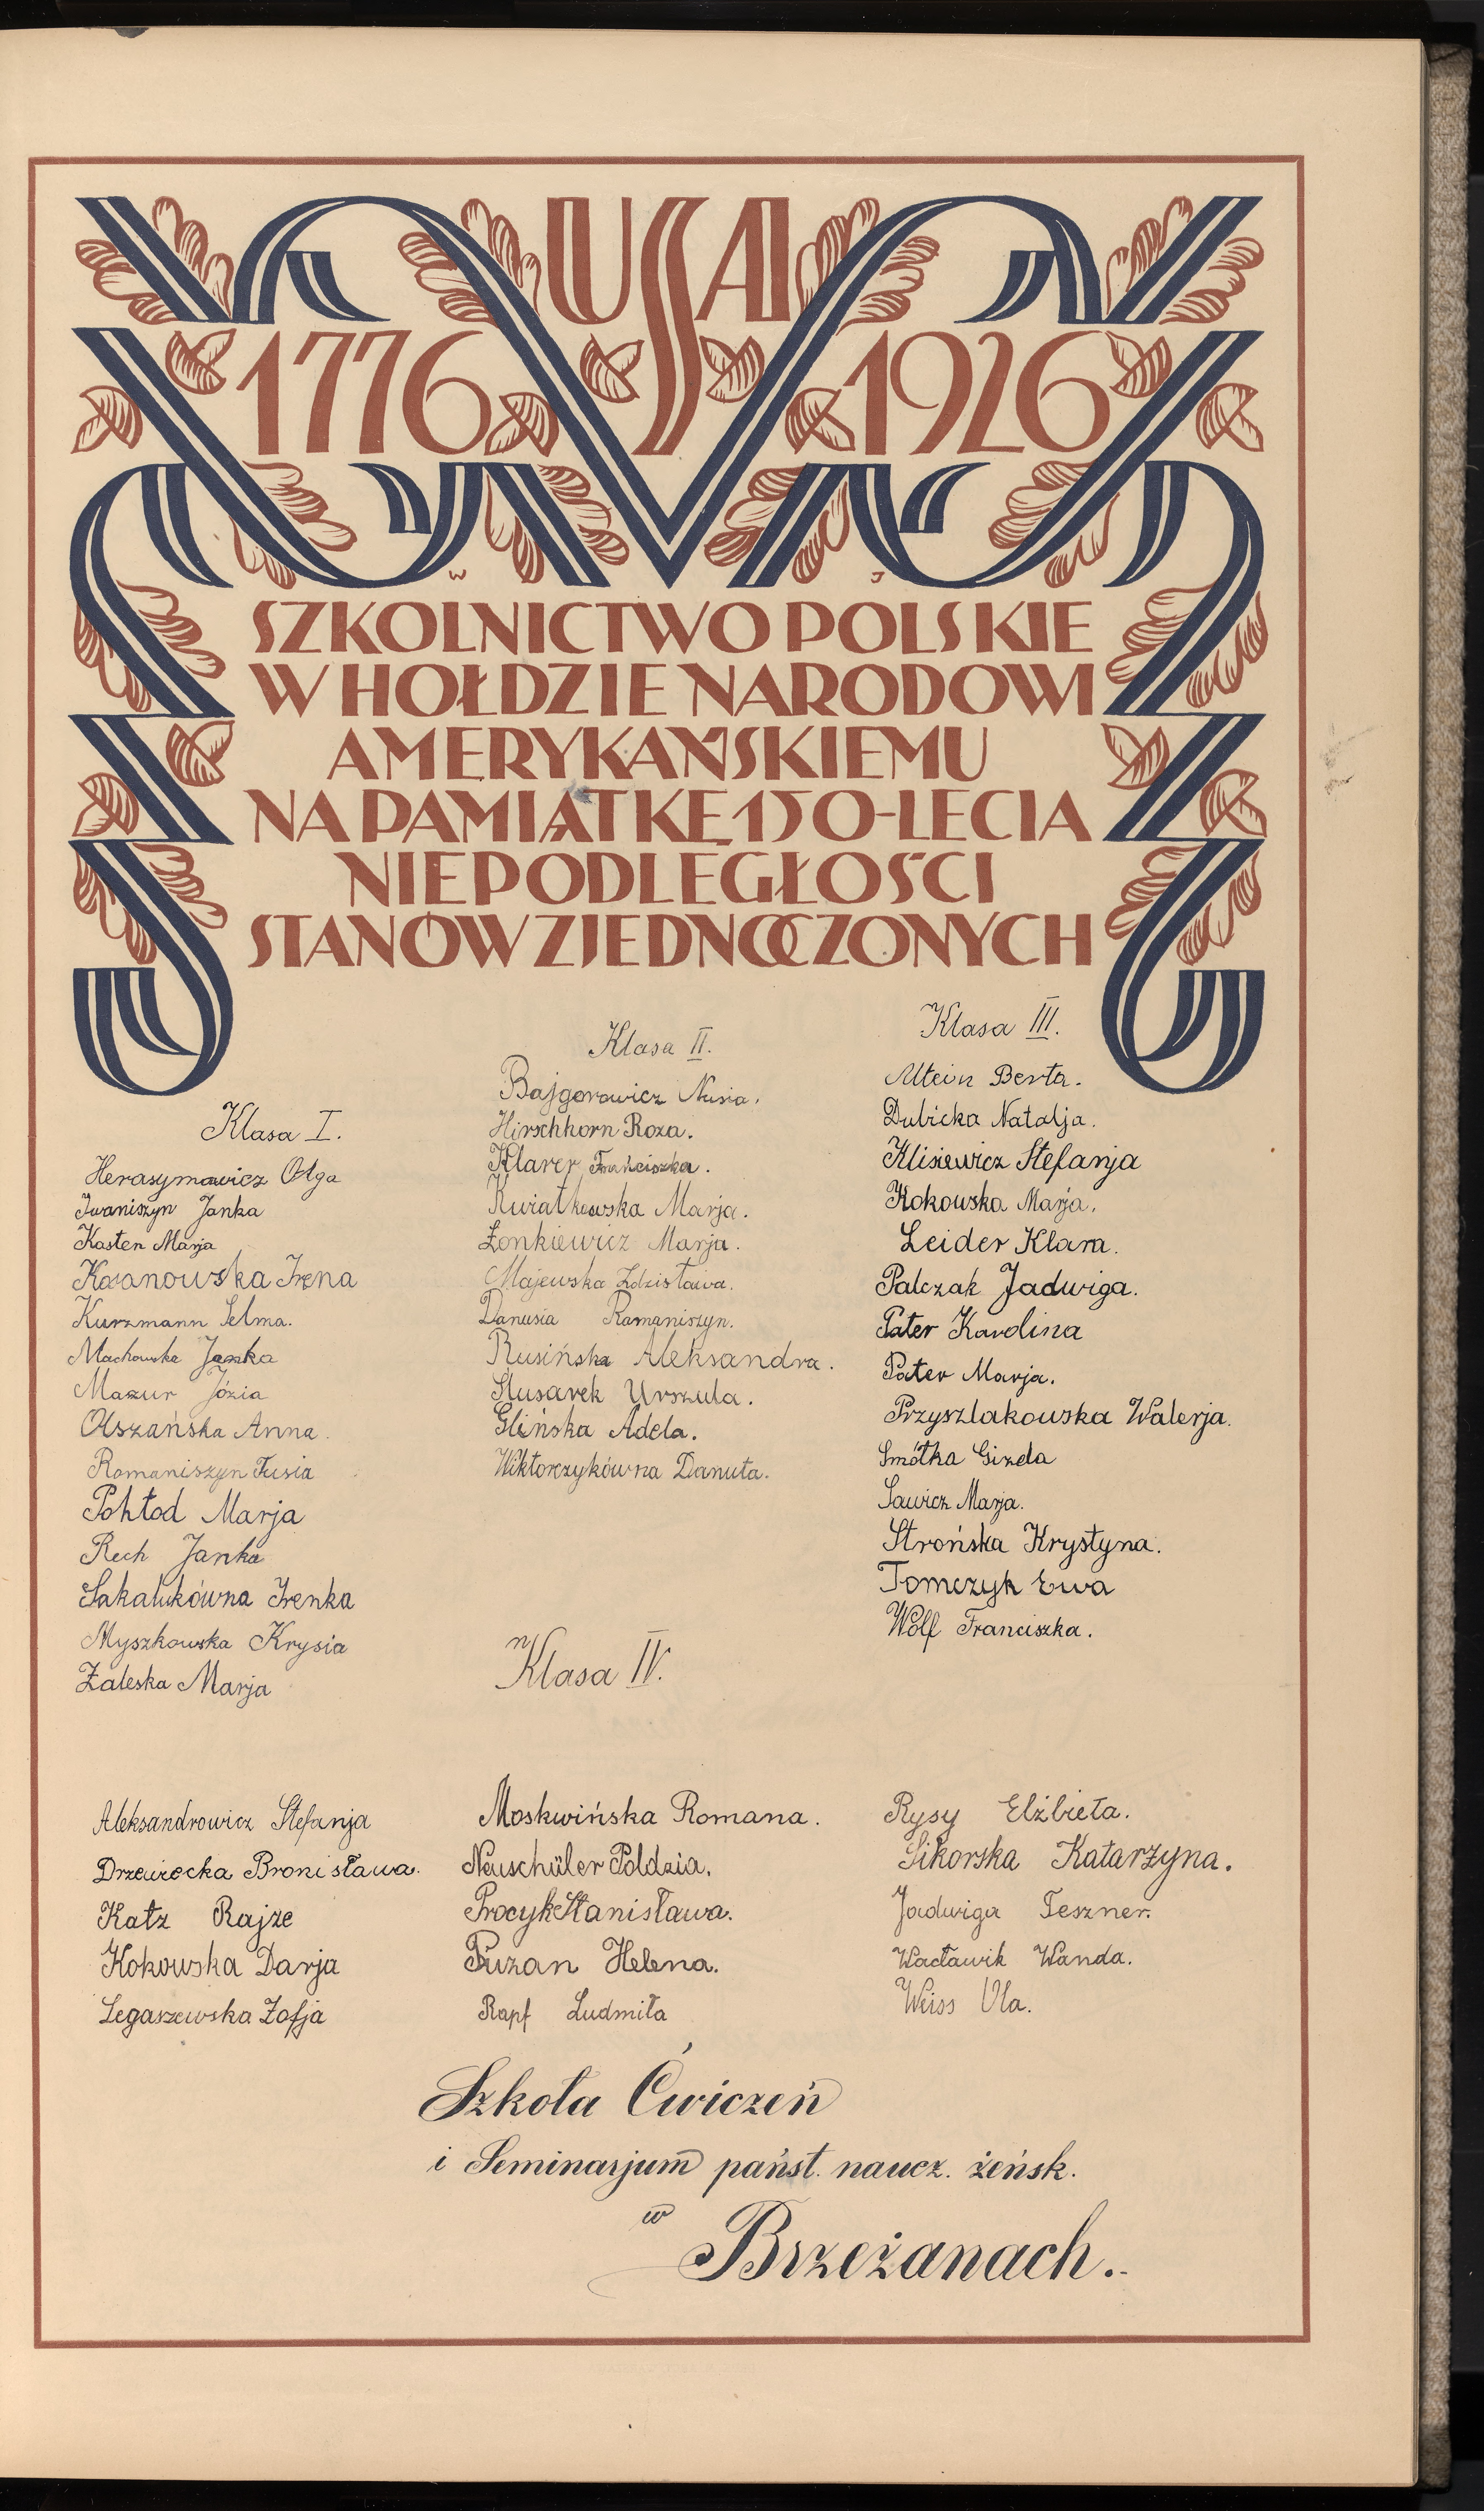 USA
1776 1926
W J
SZKOLNICTWO POLSKIE
W HOŁDZIE NARODOWI
AMERYKAŃSKIEMU
NA PAMIĄTKĘ 150-LECIA
NIEPODLEGŁOŚCI
STANÓW ZJEDNOCZONYCH
Klasa I.
Herasymowicz Olga
Iwaniszyn Janka
Kasten Marja
Irena
Kurzmann Selma.
Machowska Janka
Mazur Józia
Olszańska Anna.
Romaniszyn Tusia
Pohłod Marja
Rech Janka
Sakalukówna Irenka
Myszkowska Krysia
Zaleska Marja
Klasa II.
Bajgorowicz Nusia.
Hirschhorn Roza.
Klarer Franciszka.
Kwiatkowska Marja.
Łonkiewicz Marja.
Majewska Zdzisława.
Danusia Romaniszyn.
Rusińska Aleksandra.
Ślusarek Urszula.
Glińska Adela.
Wiktorczykówna Danuta.
Klasa III.
Altein Berta.
Dubicka Natalja.
Klisiewicz Stefanja
Kokowska Marja.
Leider Klara.
Palczak Jadwiga.
Pater Karolina
Pater Marja.
Przyszlakowska Walerja.
Smótka Gizela
Sawicz Marja.
Strońska Krystyna.
Tomczyk Ewa
Wolf Franciszka.
Klasa IV.
Aleksandrowicz Stefanja
Drzewiecka Bronisława.
Katz Rajze
Kokowska Darja
Legaszewska Zofja
Moskwińska Romana.
Neuschüler Poldzia.
Procyk Stanisława.
Puzan Helena.
Rapf Ludmiła
Rysy Elżbieta.
Sikorska Katarzyna.
Jadwiga Teszner.
Wacławik Wanda.
Weiss Ula.
Szkoła Ćwiczeń
i Seminarjum państ. naucz. żeńsk.
w
Brzeżanach.